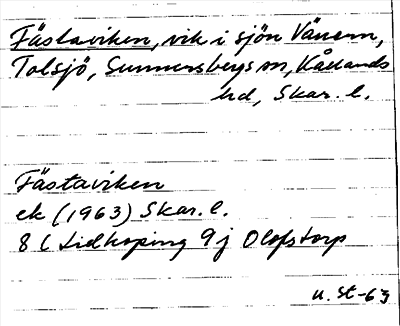 Fästaviken, vik i sjön Vänern,
Tolsjö, Sunnersbergs sn, Kållands
hd, Skar. l.
Fästaviken
ek (1963) Skar. l.
8 C Lidköping 9j Olofstorp
u. St-63